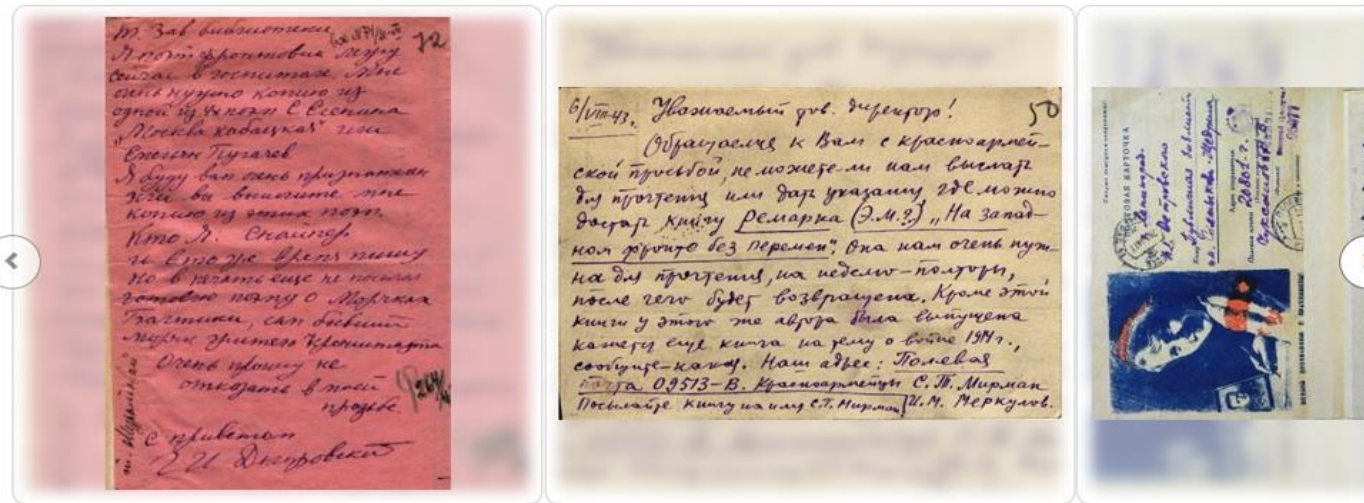 Т. Зав библиотеки
72
Я поэт фронтовик лежу
сейчас в госпитале мне
очень нужно копию из
одной из поэм С Есенина
"Москва кабацкая" или
"Емельян Пугачев
Я буду вам очень признателен
если вы вышлите мне
копию из этих поэм.
Кто Я. Снайпер
в тоже время пишу
но в печать еще не посылал
готовлю поэму о Моряках
Балтики, сам бывший
моряк Кронштадта
Очень прошу не
отказать в моей
прозьбе
264/
С приветом
Днепровский
6/VIII-43. Уважаемый тов. директор! 50
Обращаемся к Вам с красноармей-
ской просьбой, не можете-ли нам выслать
для прочтения или дать указания где можно
достать книгу Ремарка (Э.М.?) „На запад-
ном фронте без перемен". Она нам очень нуж-
на для прочтения, на неделю-полторы,
после чего будет возвращена. Кроме этой
книги у этого же автора была выпущена
кажется еще книга на тему о войне 1914г.,
сообщите-какая. Наш адрес: Полевая
почта 09513-В. Красноармейцы С.Т. Мирман
Посылайте книгу на имя С.Т. Мирман И.М. Меркулов.
ПОЧТОВАЯ КАРТОЧКА
Ленинград.
пл. Островского
Публичная библиот
Салтыкова-Щедрина